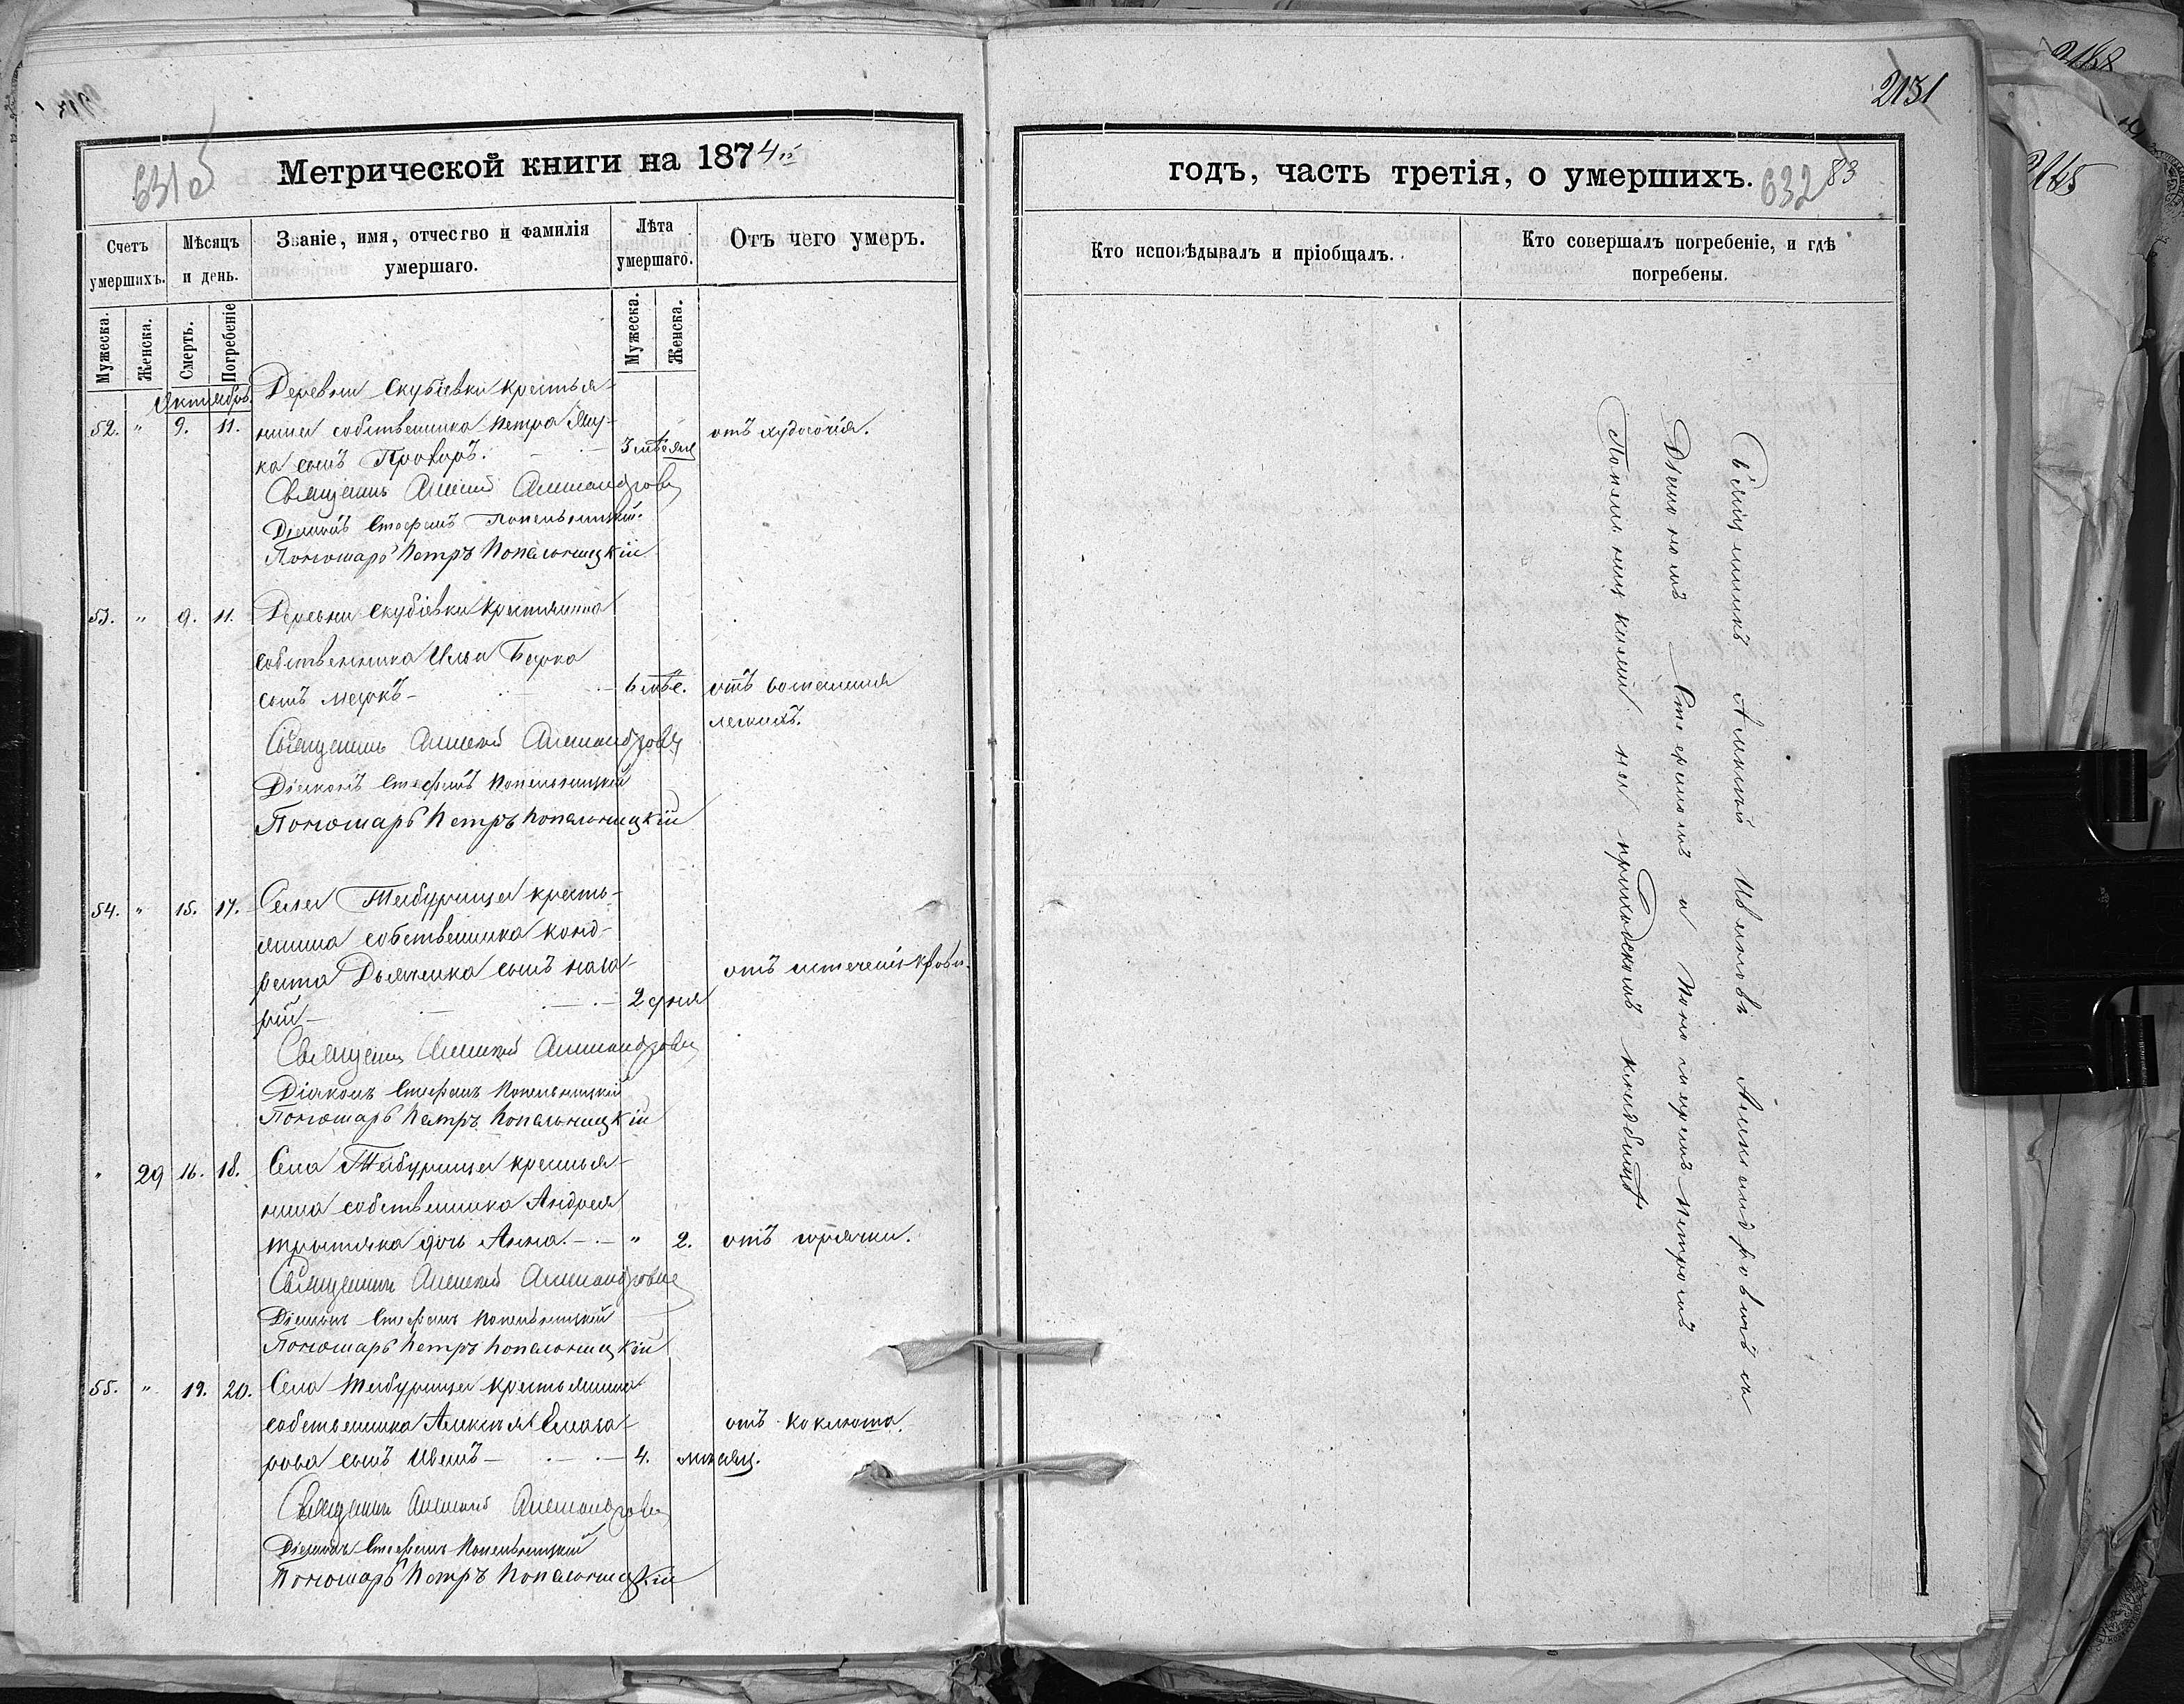 2131
631 об
Метрической книги на 1874й
годъ, часть третія, о умершихъ.
632
83
Счетъ умершихъ.
Мѣсяцъ и день.
Званіе, имя, отчество и фамилія умершаго.
Лѣта умершаго.
Отъ чего умеръ.
Кто исповѣдывалъ и пріобщалъ.
Кто совершалъ погребеніе, и гдѣ погребены.
Мужеска.
Женска.
Смерть.
Погребеніе
Мужеска.
Женска.
Октябрь
Деревни Скубіевки крестья-
52. " 9. 11. нина собственника Петра
ка сынъ Прохоръ. 3 мѣсяц отъ худосочія.
Священникъ Алексій Александровъ
Діаконъ Стефанъ Попельницкій.
Пономарь Петръ Попельницкій
53. " 9. 11. Деревни Скубіевки крестянина
собственника Ильи
сынъ 6 мѣс. отъ воспаленія
легкихъ.
Священникъ Алексій Александровъ
Діаконъ Стефанъ Попельницкій
Пономарь Петръ Попельницкій
54. " 15. 17. Села крестья-
нина собственника Конд-
рата Дьяченка сынъ Наза-
рій 2 дня отъ истеченія крови.
Священникъ Алексій Александровъ
Діаконъ Стефанъ Попельницкій
Пономарь Петръ Попельницкій
" 29 16. 18. Села крестья-
нина собственника Андрея
Третяка дочь Анна. " 2. отъ горячки.
Священникъ Алексій Александровъ
Діаконъ Стефанъ Попельницкій
Пономарь Петръ Попельницкій
55. " 19. 20. Села крестьянина
собственника Алексѣя Елеаза-
рова сынъ Иванъ 4. мѣсяц. отъ коклюша.
Священникъ Алексій Александровъ
Діаконъ Стефанъ Попельницкій
Пономарь Петръ Попельницкій
Священникъ Алексій Ивановъ Александровъ съ
Діакономъ Стефаномъ и Пономаремъ Петромъ
Попельницкими на приходскомъ кладбищѣ